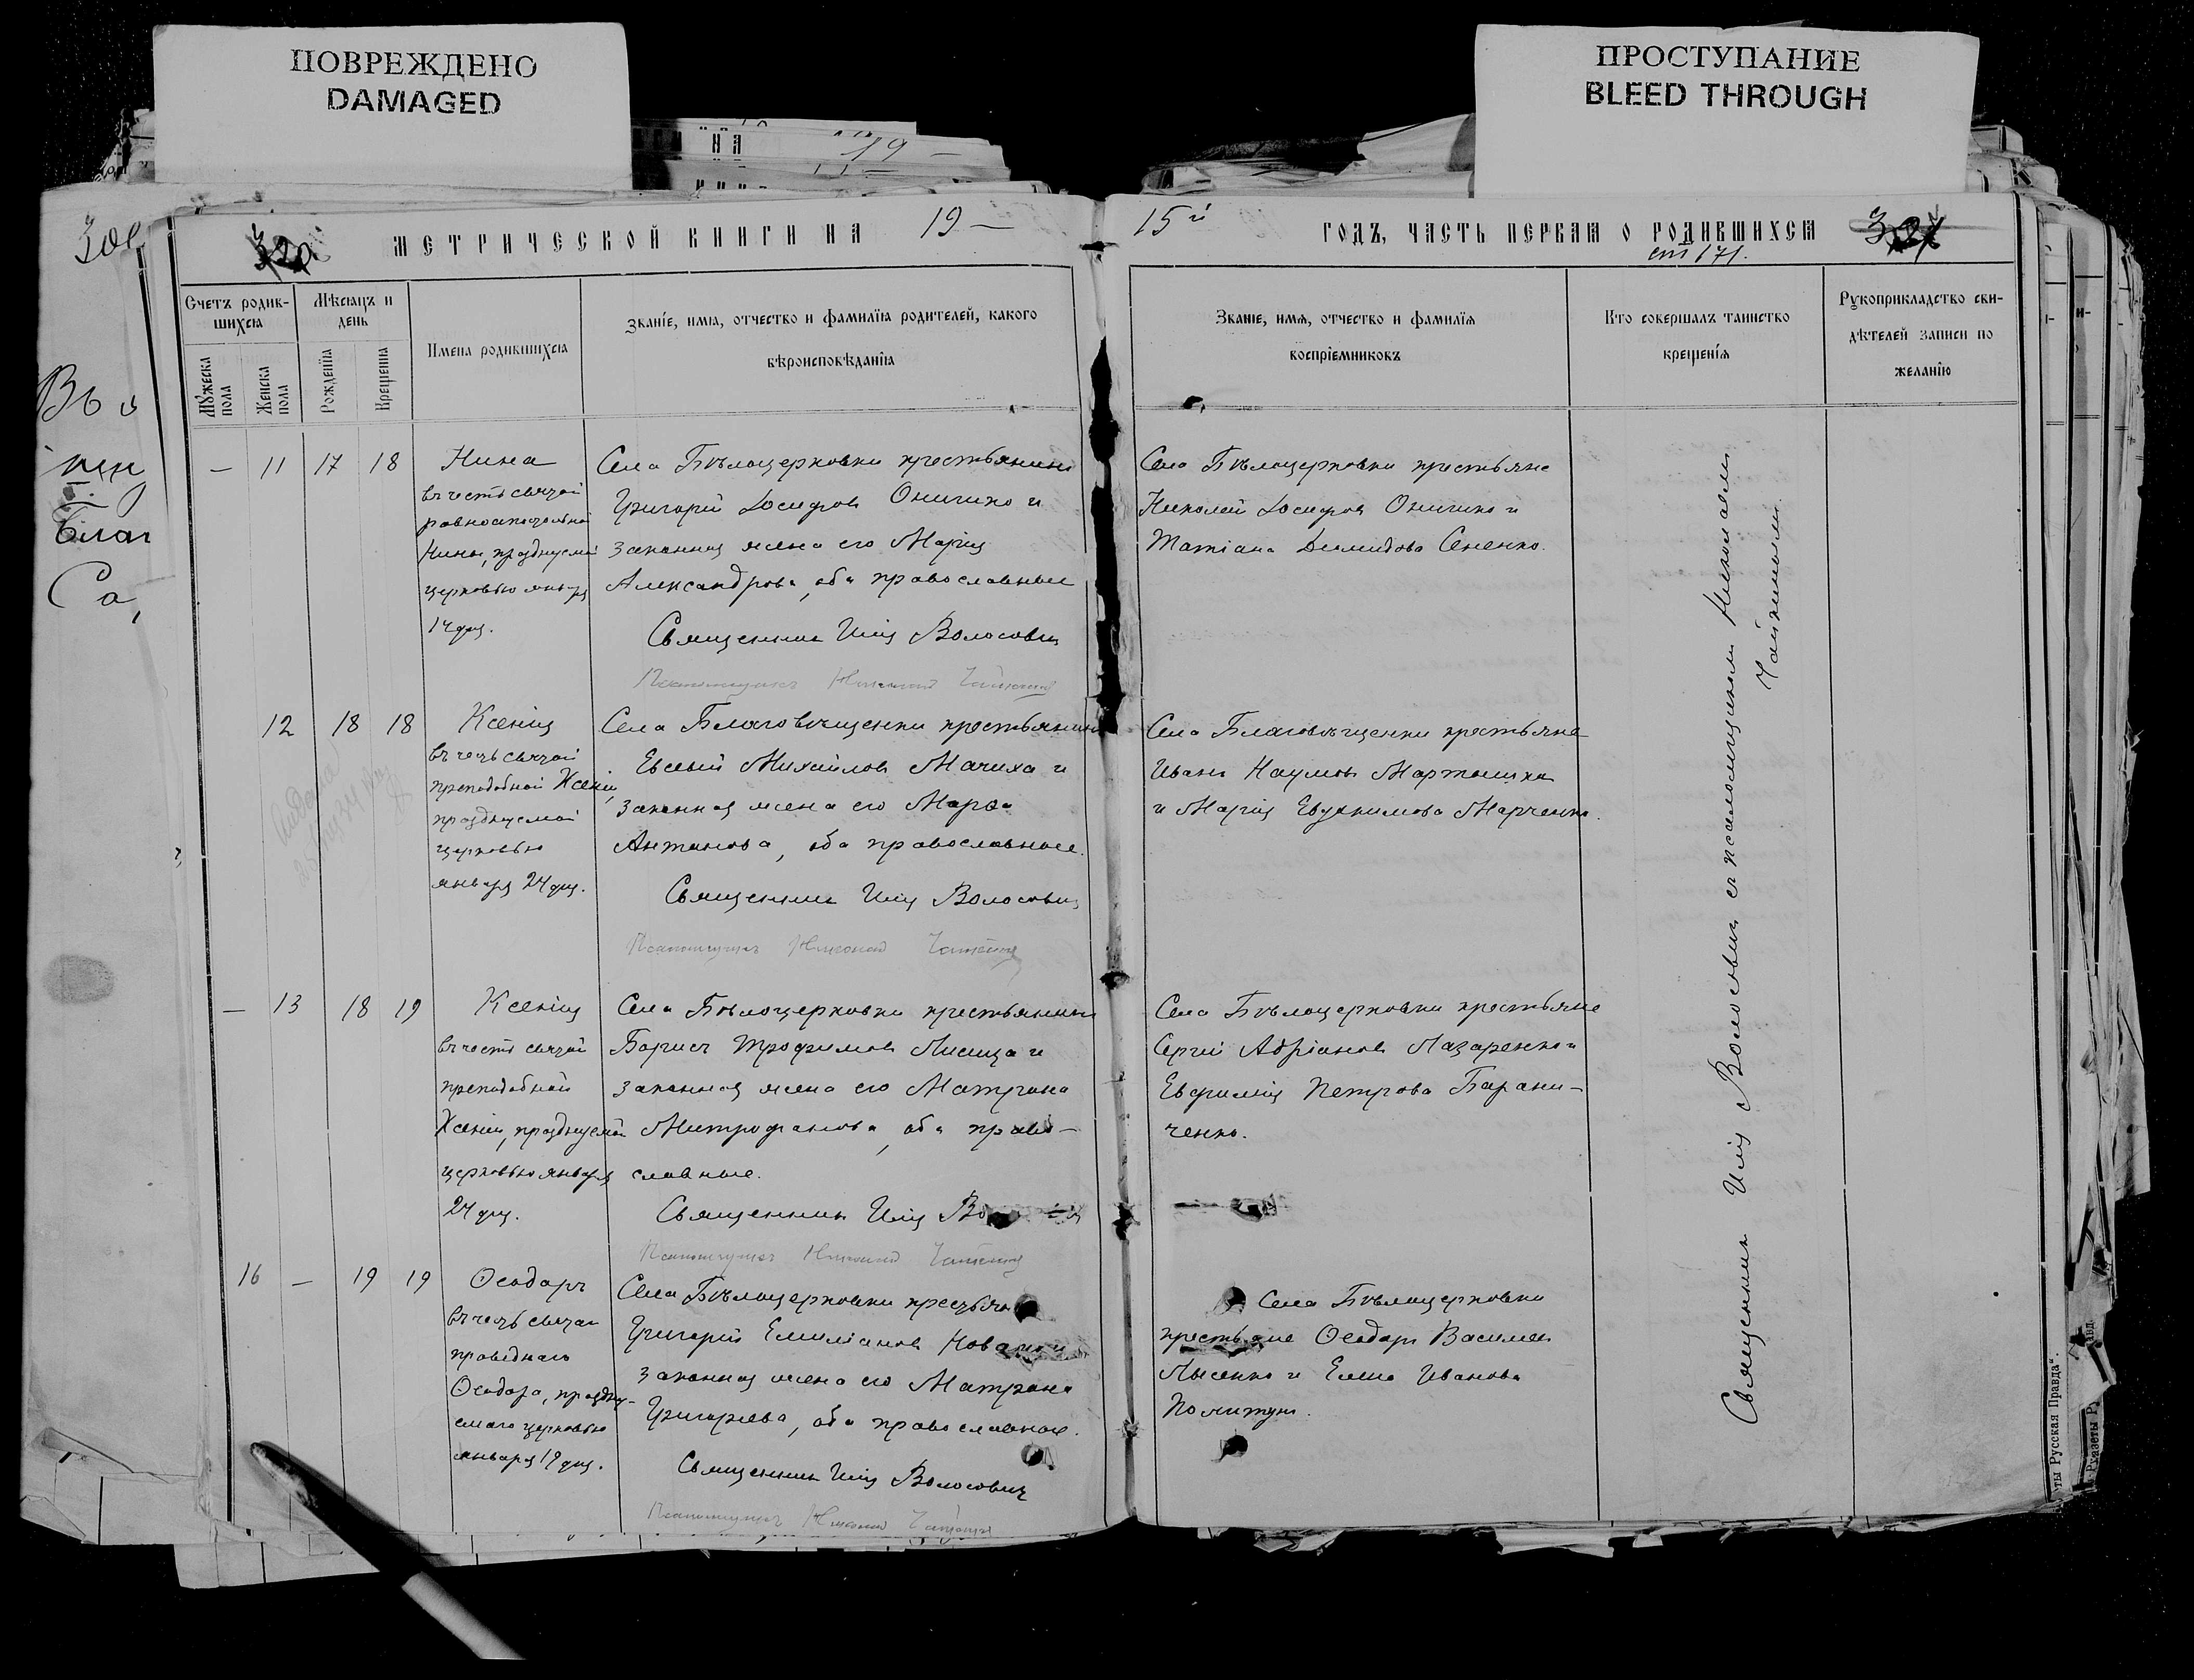 ПОВРЕЖДЕНО
DAMAGED
ПРОСТУПАНИЕ
BLEED THROUGH
МЕТРИЧЕСКОЙ КНИГИ НА 19 —
15й ГОДЪ, ЧАСТЬ ПЕРВАЯ О РОДИВШИХСЯ
Счетъ родив-
шихся
Мѣсяцъ и
день
Мужеска
пола
Женска
пола
Рожденія
Крещенія
Имена родившихся
Званіе, имя, отчество и фамилія родителей, какого
вѣроисповѣданія
Званіе, имя, отчество и фамилія
воспріемниковъ
Кто совершалъ таинство
крещенія
Рукоприкладство сви-
дѣтелей записи по
желанію
Въ
Благ
Са
— 11 17 18
Нина
въ честь святой
равноапостольной
Нины, празднуемой
церковью января
14 дня.
Села Бѣлоцерковки крестьянинъ
Григорій Іосифовъ Оничко и
законная жена его Марія
Александрова, оба православные
Священникъ Илія Волосовичъ
Псаломщикъ Николай
Села Бѣлоцерковки крестьяне
Николай Іосифовъ Оничко и
Татіана Демидова Сененко.
12 18 18
Ксенія
въ честь святой
преподобной Ксеніи,
празднуемой
церковью
января 24 дня.
Села Благовѣщенки крестьянинъ
Евсевій Михайловъ Мачиха и
законная жена его Марѳа
Антонова, оба православные.
Священникъ Илія Волосовичъ
Псаломщикъ Николай
Села Благовѣщенки крестьяне
Иванъ Наумовъ
и Марія Евдокимова Марченко.
— 13 18 19
Ксенія
въ честь святой
преподобной
Ксеніи, празднуемой
церковью января
24 дня.
Села Бѣлоцерковки крестьянинъ
Борисъ Трофимовъ Лисица и
законная жена его Матрона
Митрофанова, оба право-
славные.
Священникъ Илія
Псаломщикъ Николай
Села Бѣлоцерковки крестьяне
Сергій Адріановъ Лазаренко и
Евфимія Петрова Барани-
ченко.
16 — 19 19
Ѳеодоръ
въ честь святаго
праведнаго
Ѳеодора, праздну-
емаго церковью
января 19 дня.
Села Бѣлоцерковки
Григорій Емиліановъ
законная жена его Матрона
Григорьева, оба православные.
Священникъ Илія Волосовичъ
Псаломщикъ Николай
Села Бѣлоцерковки
крестьяне Ѳеодоръ Василіевъ
Лысенко и Елена Иванова
Священникъ Илія Волосовичъ съ псаломщикомъ Николаемъ
ты Русская Правда".